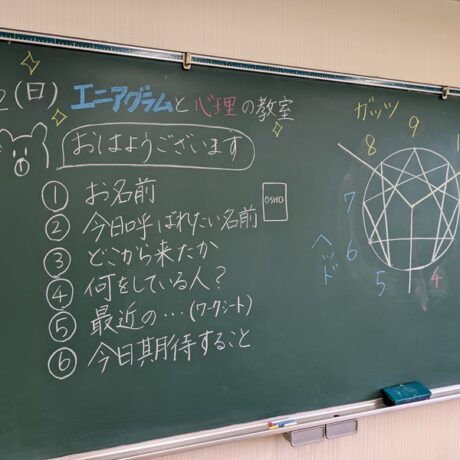 2(日) エニアグラムと心理の教室
おはようございます
① お名前
② 今日呼ばれたい名前
OSHO
③ どこから来たか
④ 何をしている人?
⑤ 最近の…(ワークシート)
⑥ 今日期待すること
ガッツ
9
8
1
7
ヘッド
6
5
4